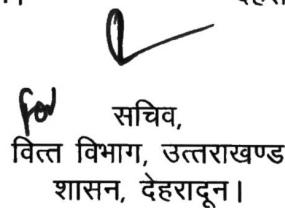 For
सचिव,
वित्त विभाग, उत्तराखण्ड
शासन, देहरादून।